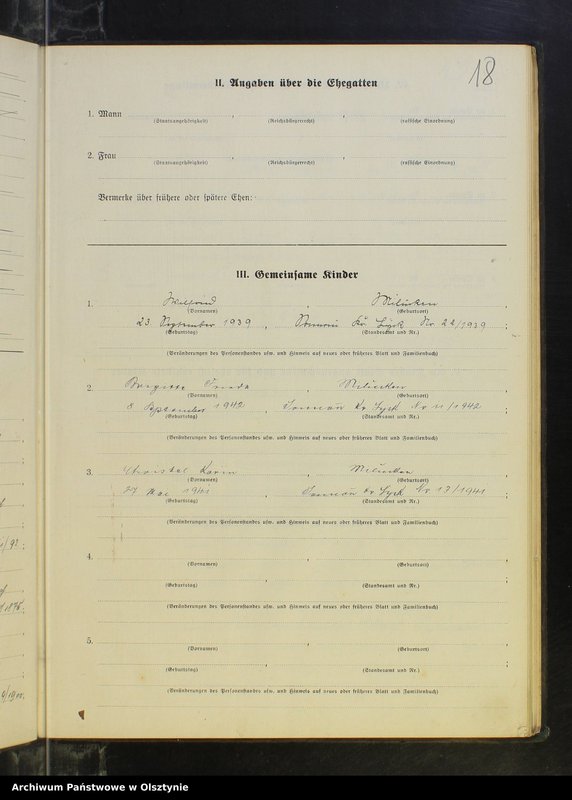 18
II. Angaben über die Ehegatten
1. Mann , ,
(Staatsangehörigkeit) (Reichsbürgerrecht) (rassische Einordnung)
2. Frau , ,
(Staatsangehörigkeit) (Reichsbürgerrecht) (rassische Einordnung)
Vermerke über frühere oder spätere Ehen:
III. Gemeinsame Kinder
1. , Milucken ,
(Vornamen) (Geburtsort)
23. September 1939 , Kr Lyck No 22/1939 ;
(Geburtstag) (Standesamt und Nr.)
(Veränderungen des Personenstandes usw. und Hinweis auf neues oder früheres Blatt und Familienbuch)
2. Brigitte , Milucken ,
(Vornamen) (Geburtsort)
8 September 1942 , Kr Lyck No 11/1942 ;
(Geburtstag) (Standesamt und Nr.)
(Veränderungen des Personenstandes usw. und Hinweis auf neues oder früheres Blatt und Familienbuch)
3. Christel Karin , Milucken ,
(Vornamen) (Geburtsort)
27 Mai 1941 , Kr Lyck No 13/1941 ;
(Geburtstag) (Standesamt und Nr.)
(Veränderungen des Personenstandes usw. und Hinweis auf neues oder früheres Blatt und Familienbuch)
4. , ,
(Vornamen) (Geburtsort)
, ;
(Geburtstag) (Standesamt und Nr.)
(Veränderungen des Personenstandes usw. und Hinweis auf neues oder früheres Blatt und Familienbuch)
5. , ,
(Vornamen) (Geburtsort)
, ;
(Geburtstag) (Standesamt und Nr.)
(Veränderungen des Personenstandes usw. und Hinweis auf neues oder früheres Blatt und Familienbuch)
Archiwum Państwowe w Olsztynie